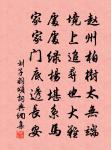 赵州柏树太无端
境上追寻也大难
处处绿杨堪系马
家家门底透长安
刘子羽颂诗典网集